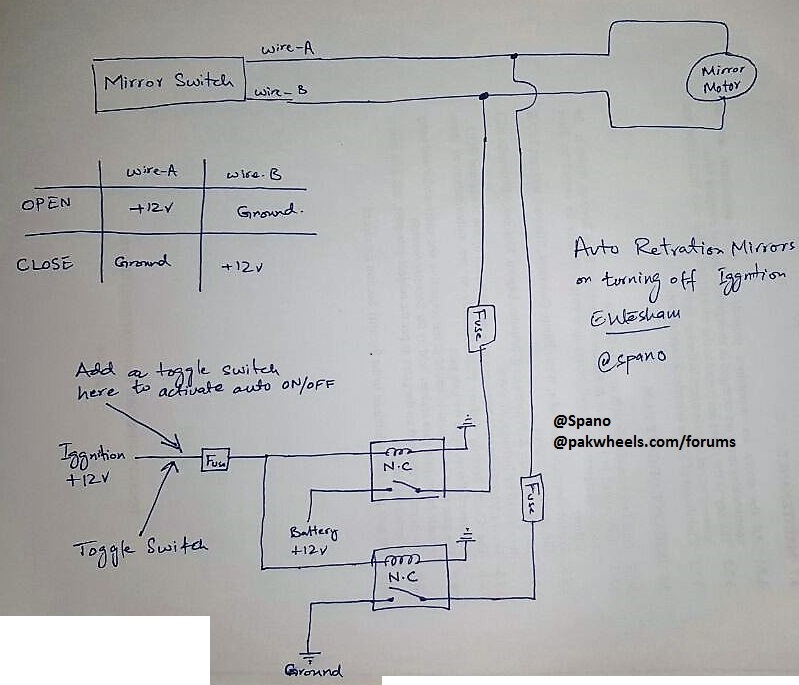 wire-A
Mirror Switch
wire-B
Mirror
Motor
wire-A wire-B
OPEN +12v Ground.
CLOSE Ground +12v
Auto Retration Mirrors
on turning off Iggntion
Ehtesham
@spano
Fuse
Add a toggle switch
here to activate auto ON/OFF
@Spano
@pakwheels.com/forums
Iggnition
+12V
Fuse
N.C
Fuse
Battery
+12v
Toggle Switch
N.C
Ground